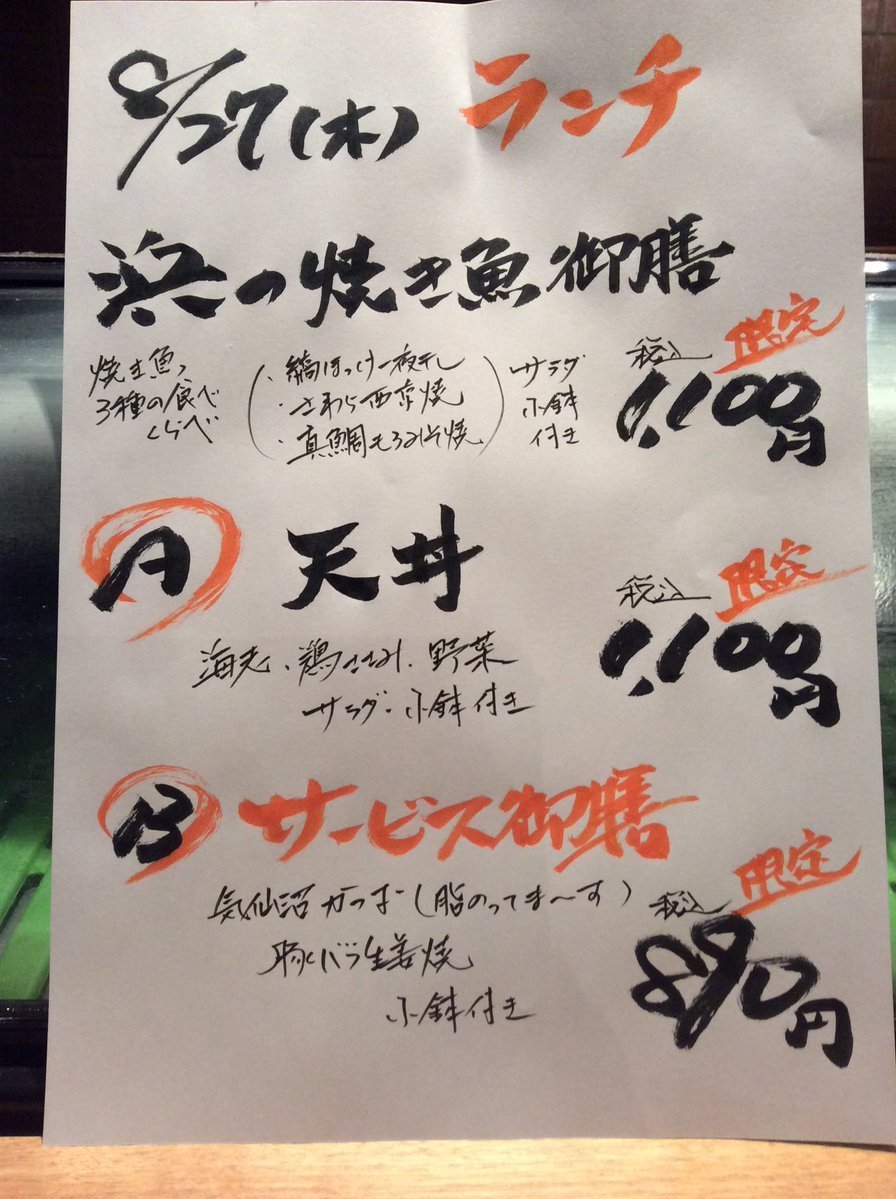 8/27(木) ランチ
浜の焼き魚御膳
限定
焼き魚
3種の食べ
くらべ
・縞ほっけ一夜干し
・さわら西京焼
・真鯛もろみ焼
サラダ
小鉢
付き
税込
1,100円
A 天丼
限定
海老、鶏ささみ、野菜
サラダ・小鉢付き
税込
1,100円
B サービス御膳
限定
気仙沼かつお(脂のってま〜す)
豚バラ生姜焼
小鉢付き
税込
890円